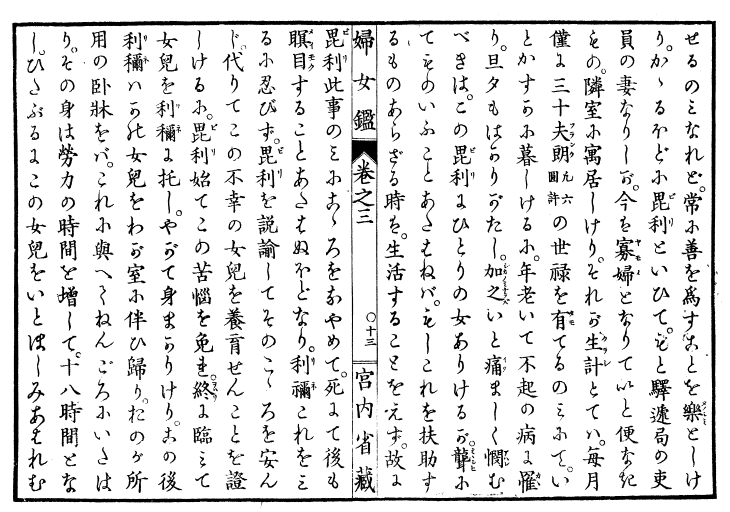 せるのミなれど。常に善を爲すことを樂としけ
り。かゝるほどに毘利といひて。もと驛遞局の吏
員の妻なりしが。今を寡婦となりていと便なき
もの。隣室に寓居しけり。それが生計とてハ。毎月
僅に三十夫朗凡六圓許の世禄を有てるのミにて。い
とかすかに暮しけるに。年老いて不起の病に罹
り。旦夕もはかりがたし。加之いと痛ましく憫む
べきは。この毘利にひとりの女ありけるが。聾に
てものいふことあたはねバ。もしこれを扶助す
るものあらざる時を。生活することをえず。故に
婦女鑑 卷之三 ○十三 宮内省藏
毘利此事のミにこゝろをなやめて。死にて後も
瞑目することあたはぬほどなり。利禰これをミ
るに忍びず。毘利を説諭してそのこゝろを安ん
じ。代りてこの不幸の女兒を養育せんことを證
しけるに。毘利始てこの苦惱を免れ。終に臨ミて
女兒を利禰に托し。やがて身まかりけり。この後
利禰ハかの女兒をわが室に伴ひ歸り。おのが所
用の臥牀をバ。これに與へ。ねんごろにいたは
り。その身は勞力の時間を増して。十八時間とな
し。ひたぶるにこの女兒をいとほしみあはれむ